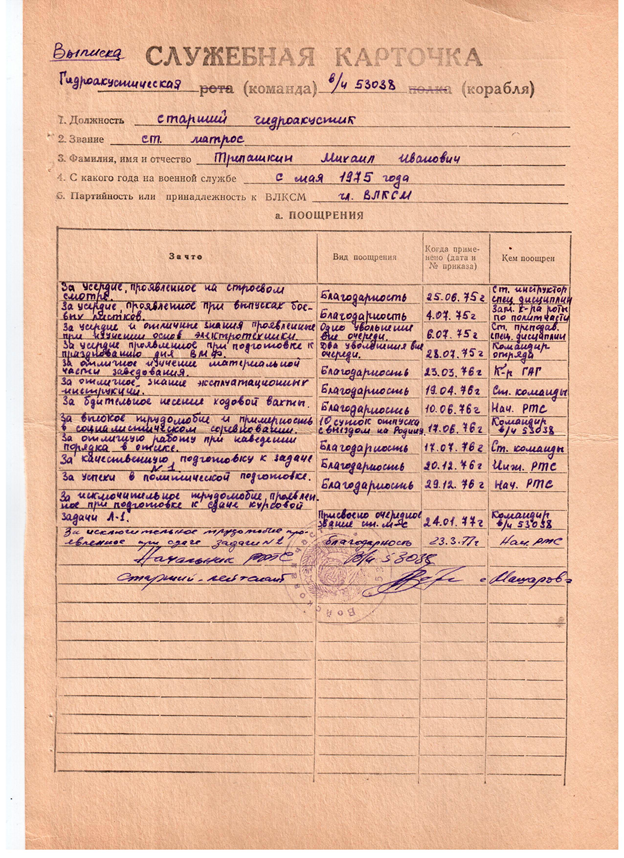 Выписка
СЛУЖЕБНАЯ КАРТОЧКА
Гидроакустическая рота (команда) в/ч 53038 полка (корабля)
1. Должность старший гидроакустик
2. Звание ст. матрос
3. Фамилия, имя и отчество Трепашкин Михаил Иванович
4. С какого года на военной службе с мая 1975 года
5. Партийность или принадлежность к ВЛКСМ чл. ВЛКСМ
а. ПООЩРЕНИЯ
За что Вид поощрения Когда приме-нено (дата и № приказа) Кем поощрен
За усердие, проявленное на строевом смотре. Благодарность 25.06.75г Ст. инструктор спец дисциплин
За усердие, проявленное при выпусках бое-вых листков. Благодарность 4.07.75г Зам. к-ра роты по политчасти
За усердие и отличные знания проявленные при изучении основ электротехники. Одно увольнение вне очереди. 6.07.75г Ст. препадав. спец. дисциплин
За усердие проявленное при подготовке к празднованию дня ВМФ. Два увольнения вне очереди. 28.07.75г Командир отряда
За отличное изучение материальной части заведования. Благодарность 25.03.76г К-р ГАГ
За отличное знание эксплуатационных инструкций. Благодарность 19.04.76г Ст. команды
За бдительное несение ходовой вахты. Благодарность 10.06.76г Нач. РТС
За высокое трудолюбие и примерность в социалистическом соревновании. 10 суток отпуска с выездом на Родину 17.06.76г Командир в/ч 53038
За отличную работу при наведении порядка в отсеке. Благодарность 17.07.76г Ст. команды
За качественную подготовку к задаче №1 Благодарность 20.12.76г Инж. РТС
За успехи в политической подготовке. Благодарность 29.12.76г Нач. РТС
За исключительное трудолюбие, проявлен-ное при подготовке к сдаче курсовой задачи Л-1. Присвоено очередное звание ст. м-с 24.01.77г Командир в/ч 53038
За исключительное трудолюбие про-явленное при сдаче задачи №2 Благодарность 23.3.77г Нач. РТС
Начальник РТС в/ч 53038
старший-лейтенант